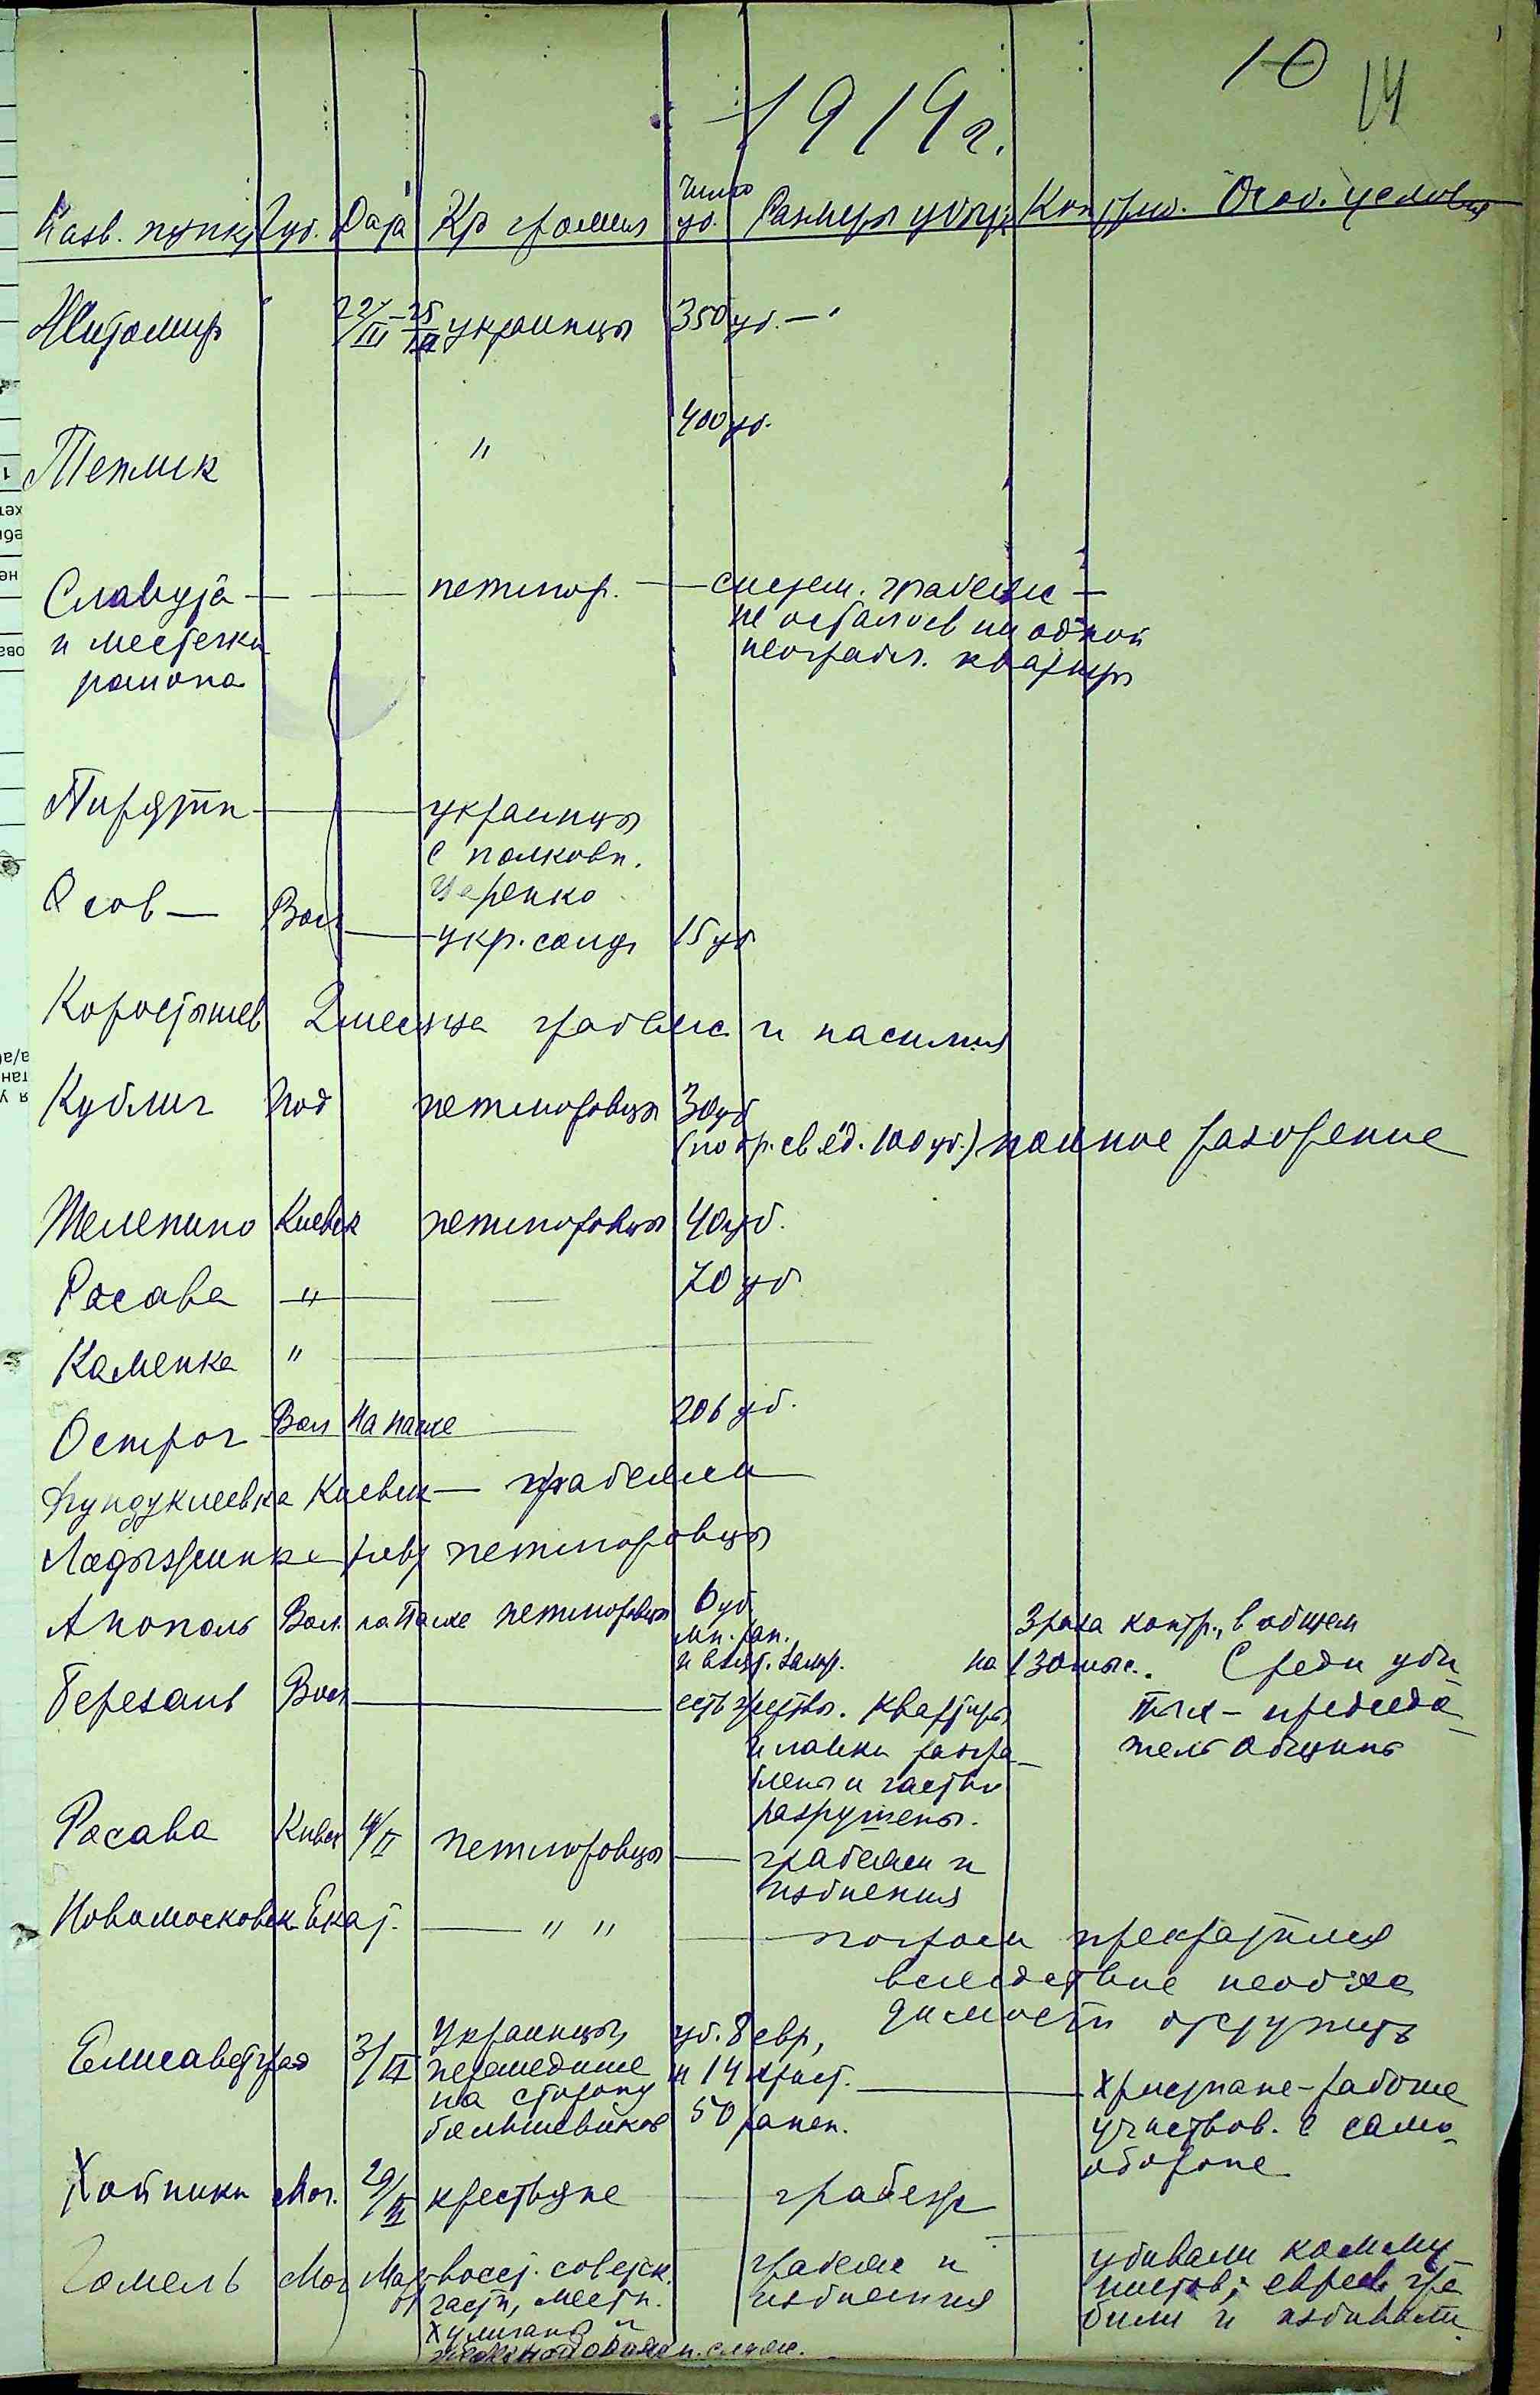 10 14
1919 г.
Назв. пункт Губ. Дата Кр громил Число уб. Размеры убытк Контриб. Особ. условия
Житомир 22/III–25/III украинцы 350 уб. —
Теплик " 400 уб.
Славута — — петлюр. — систем. грабежи —
и местечки не осталось ни одной
района неограбл. квартиры
Пирятин — украинцы
с полковн.
Царенко
Осов — Вол — укр. солд. 15 уб
Коростышев 2 месяца грабежи и насилия
Кублич Под петлюровцы 30 уб
(по др. свед. 100 уб.) полное разорение
Телепино Киевск петлюровцы 40 уб.
Росава " — — 70 уб
Каменка "
Острог Вол На пасхе — 206 уб.
Фундуклеевка Киевск — грабежи
Ладыженка февр петлюровцы
Анополь Вол. на Пасхе петлюровцы 6 уб
мн. ран. 3 раза контр., в общем
на 130 тыс. Среди уби
Березань Вол — есть жертвы. Квартиры тых – председа-
и лавки разгра- тель общины
блены и частью
разрушены.
Росава Киевск 4/II петлюровцы — грабежи и
избиения
Новомосковск Екат. — " " — погром прекратился
вследствие необхо
димости отступить
Елисаветград 3/II Украинцы, уб. 8 евр,
перешедшие и 14 христ. — Христиане-рабочие
на сторону 50 ранен. участвов. в само-
большевиков обороне
Хойники Мог. крестьяне грабеж
Гомель Мог Март восст. советск. грабежи и убивали комму-
части, местн. избиения нистов; евреев гра
хулиганы и били и избивали.
железнодорожн. служ.